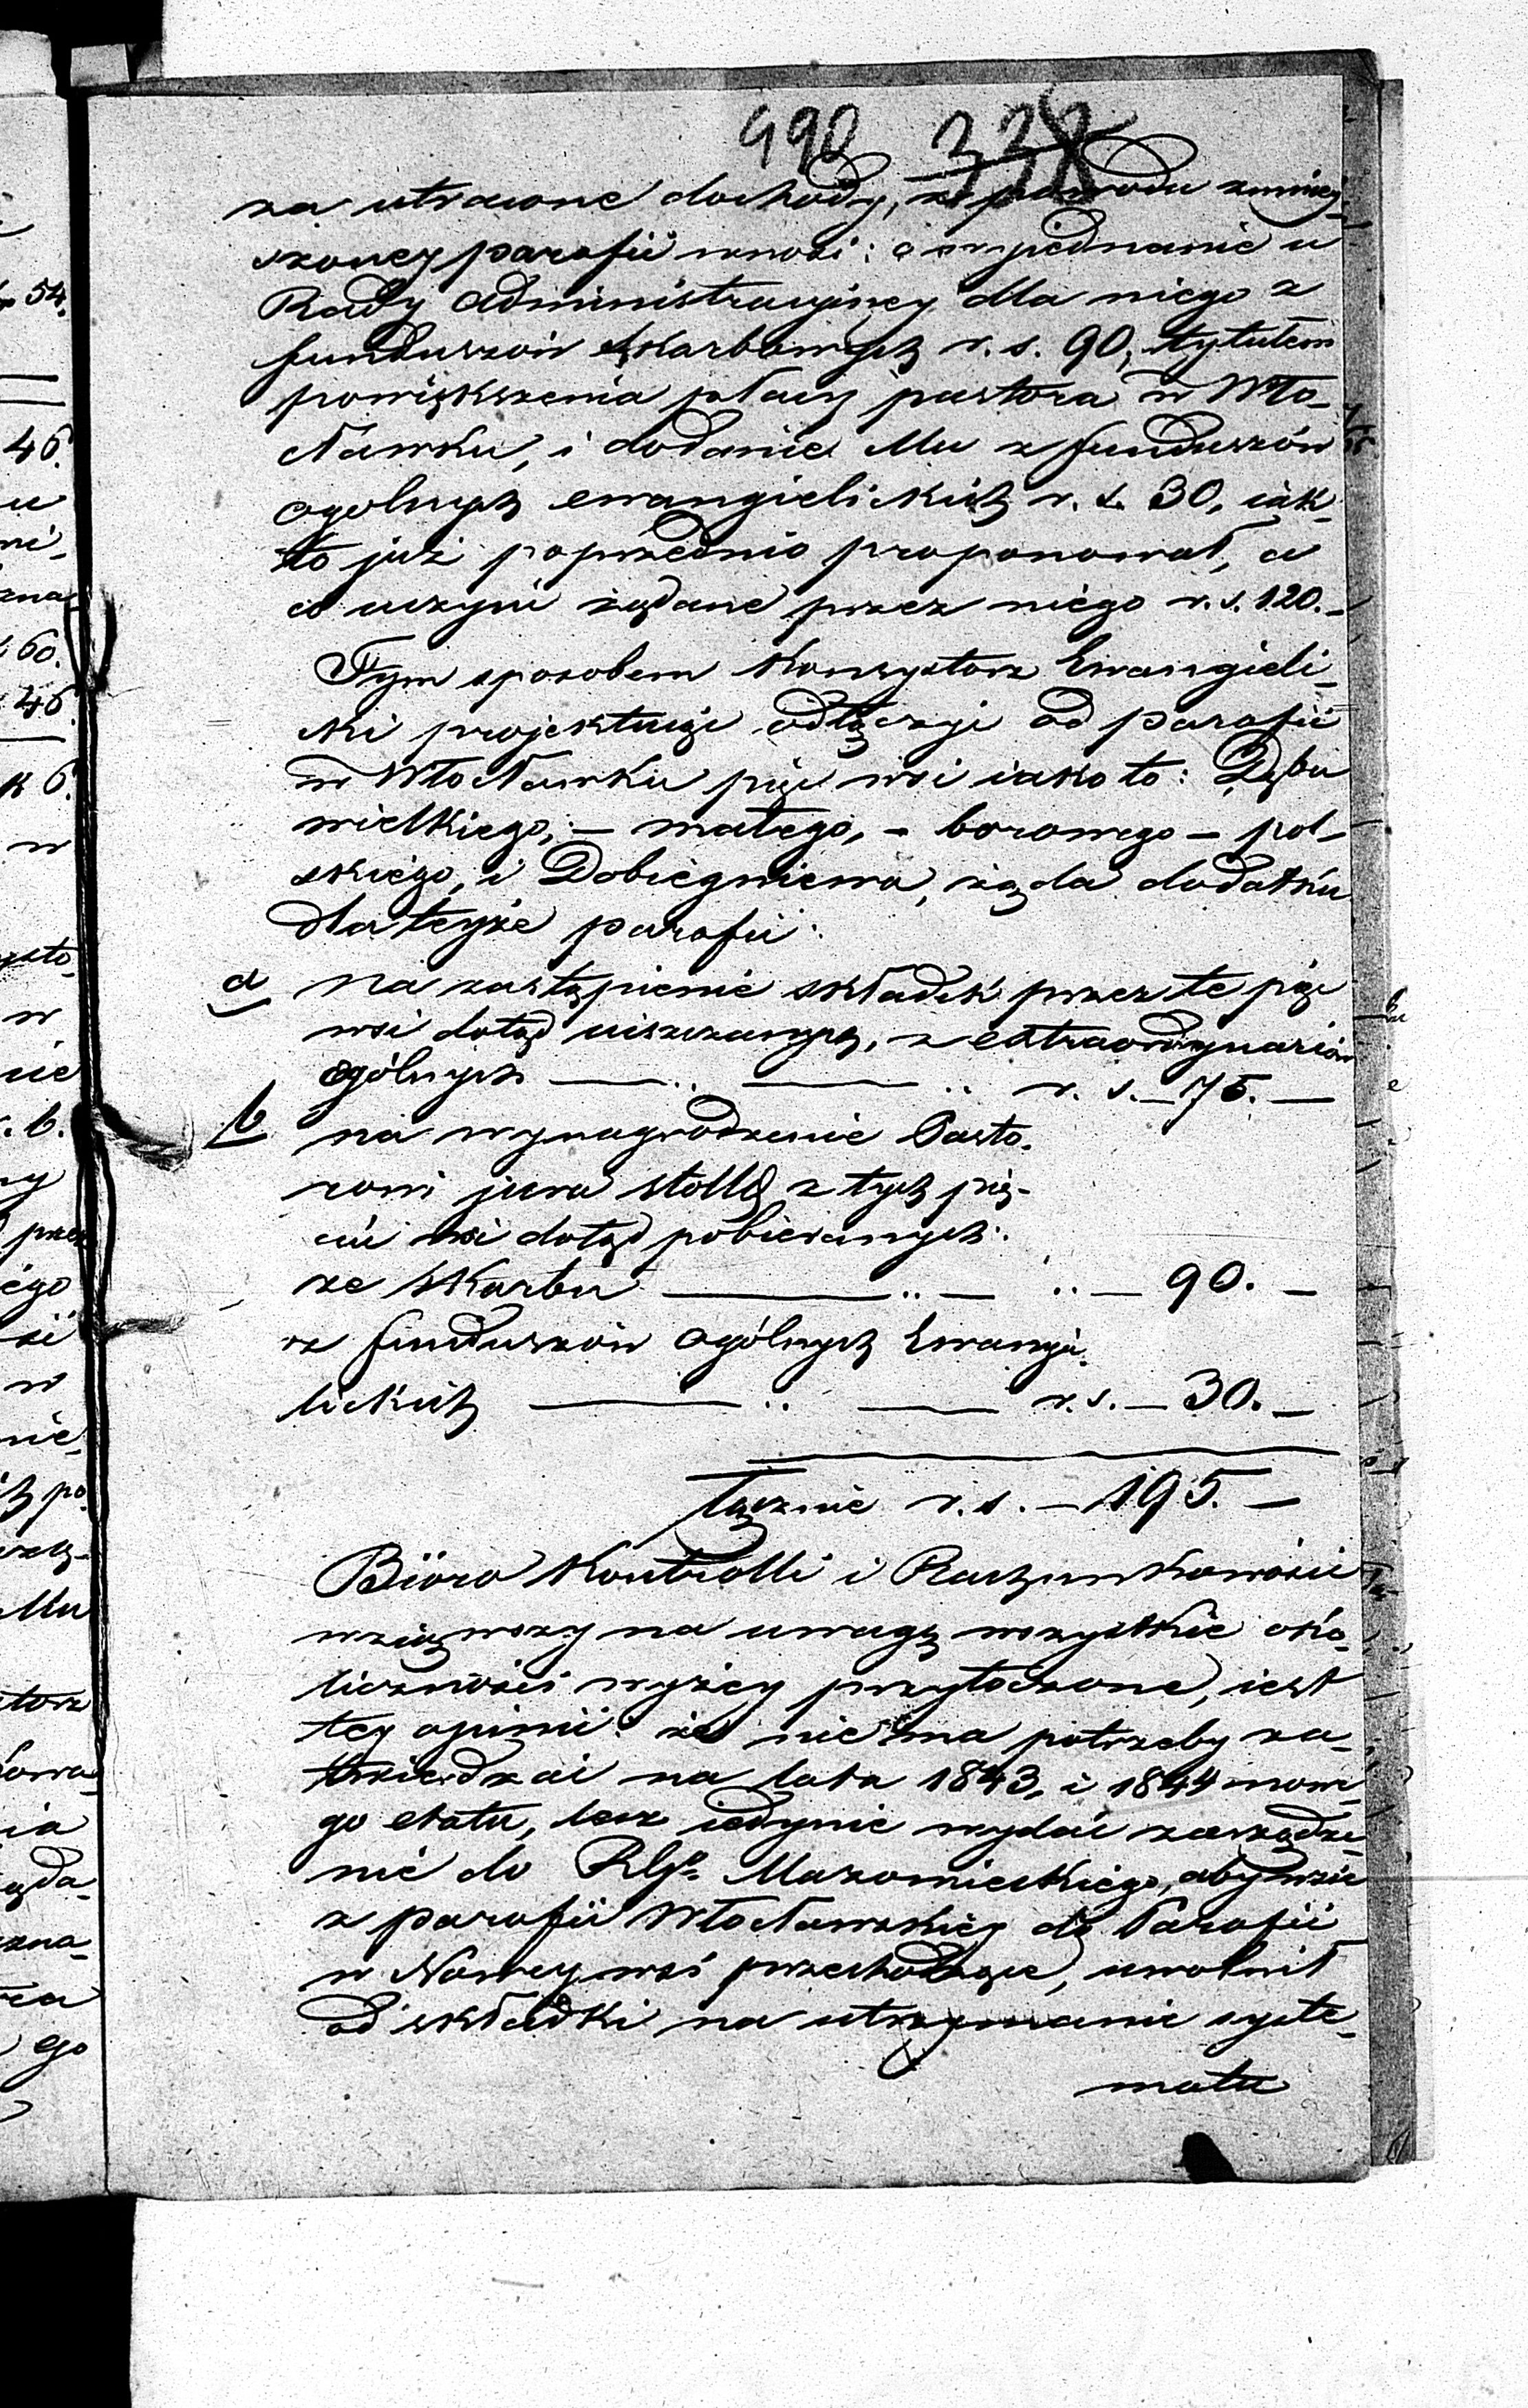 990 338
za utracone dochody, z powodu zmniej-
szoney parafii wnosi: o wyjednanie u
Rady Administracyjney dla niego z
funduszów Skarbowych r. s. 90, tytułem
powiększenia płacy pastora w Wło-
cławku, i dodanie Mu z funduszów
ogólnych ewangielickich r. s. 30, iak
to już poprzednio proponował, a
co uczyni żądane przez niego r. s. 120.-
Tym sposobem Konsystorz Ewangieli-
cki projektuje odłączyć od parafii
w Włocławku pięć wsi iako to: Dębu
wielkiego, - małego, - borowego - pol-
skiego, i Dobiegniewa, żąda dodatku
dla teyże parafii:
a na zastąpienie składek przez te pięć
wsi dotąd uiszczanych, z extraordynariów
ogólnych — .. — .. r. s. - 75. —
b na wynagrodzenie Pasto-
rowi jura stollę z tych pię-
ciu wsi dotąd pobieranych:
ze Skarbu — .. — .. — 90. —
z funduszów ogólnych Ewangie-
lickich — .. — r. s. — 30. —
Łącznie r. s. — 195. —
Bióro Kontrolli i Rachunkowości
wziąwszy na uwagę wszystkie oko-
liczności wyżey przytoczone, iest
tey opinii: że nie ma potrzeby za-
twierdzać na lata 1843, i 1844 nowe-
go etatu, lecz iedynie wydać zarządze-
nie do Rządu Mazowieckiego, aby wsie
z parafii Włocławskiey do Parafii
w Nowey wsi przechodzące, uwolnił
od składki na utrzymanie syste-
matu